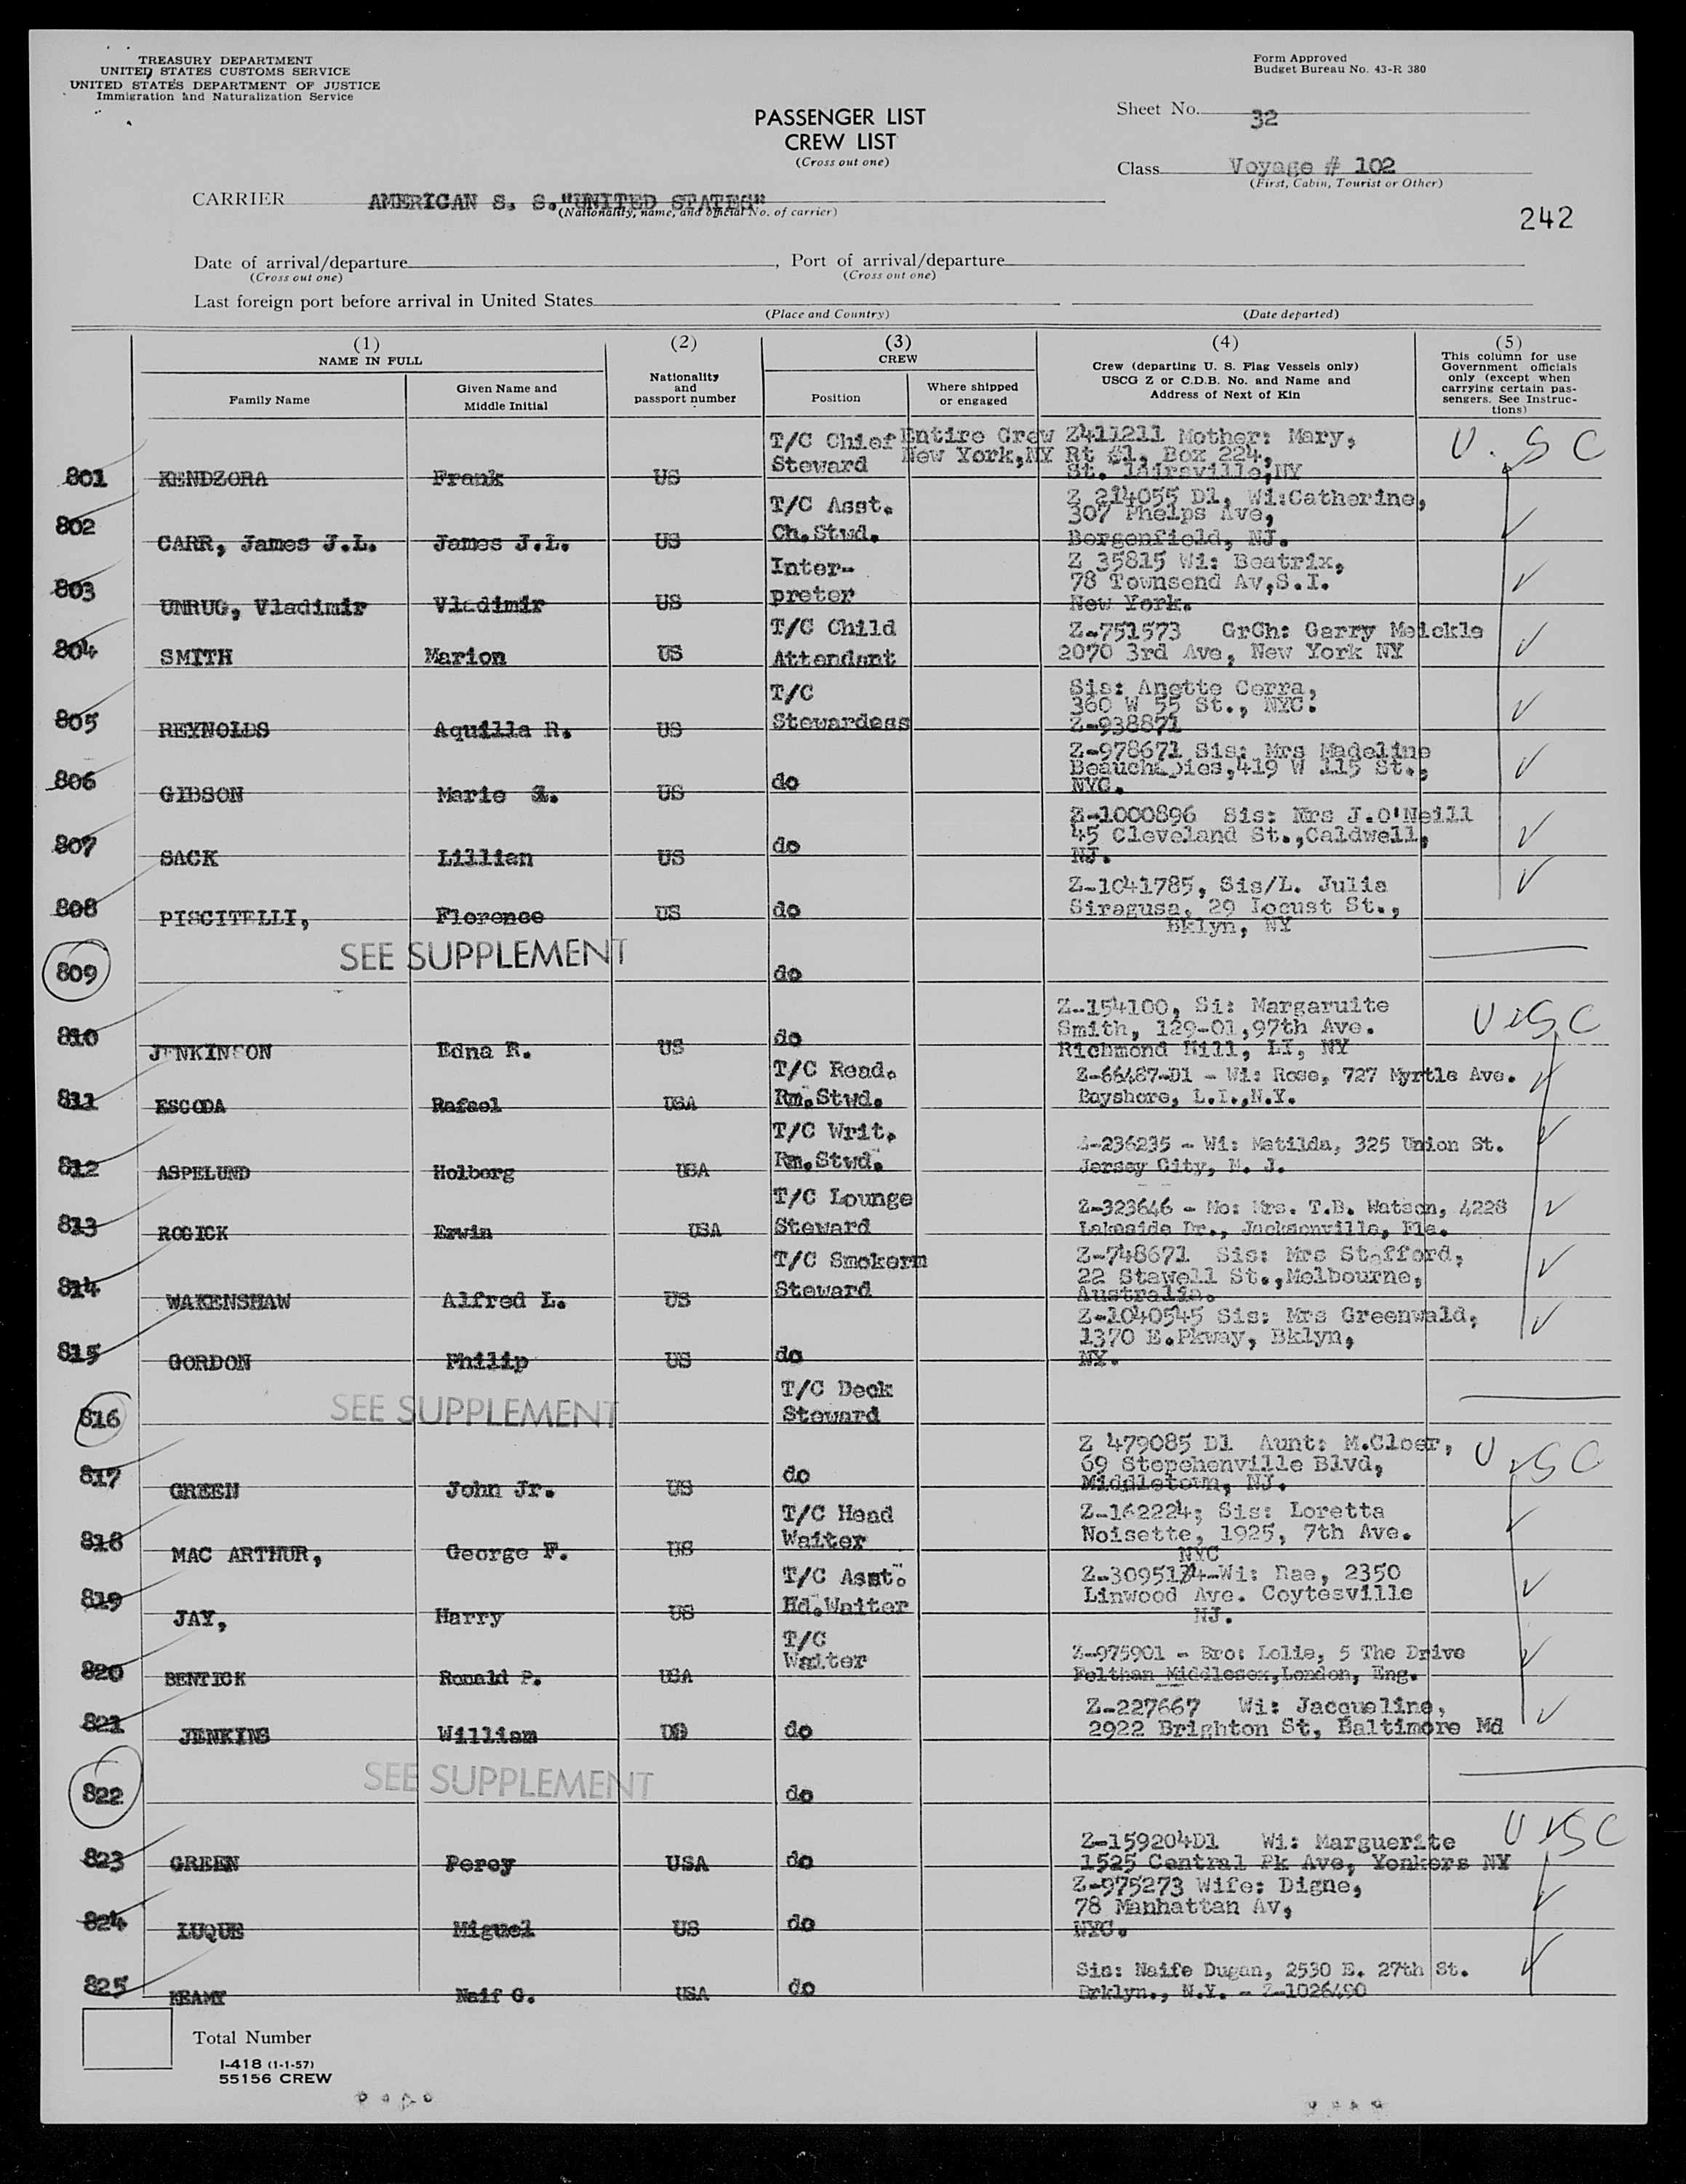 TREASURY DEPARTMENT
UNITED STATES CUSTOMS SERVICE
UNITED STATES DEPARTMENT OF JUSTICE
Immigration and Naturalization Service
Form Approved
Budget Bureau No. 43-R 380
PASSENGER LIST
CREW LIST
(Cross out one)
Sheet No. 32
Class Voyage # 102
(First, Cabin, Tourist or Other)
CARRIER AMERICAN S. S. "UNITED STATES"
(Nationality, name, and official No. of carrier)
242
Date of arrival/departure , Port of arrival/departure
(Cross out one) (Cross out one)
Last foreign port before arrival in United States
(Place and Country) (Date departed)
(1) NAME IN FULL
Family Name
Given Name and Middle Initial
(2)
Nationality and passport number
(3) CREW
Position
Where shipped or engaged
(4)
Crew (departing U. S. Flag Vessels only)
USCG Z or C.D.B. No. and Name and
Address of Next of Kin
(5)
This column for use
Government officials
only (except when
carrying certain pas-
sengers. See Instruc-
tions)
T/C Chief Entire Crew Z411211 Mother: Mary, U.SC
Steward New York,NY Rt #1, Box 224,
801 KENDZORA Frank US St. NY
T/C Asst. Z 214055 D1, Wi:Catherine,
307 Phelps Ave,
802 CARR, James J.L. James J.L. US Ch.Stwd. Bergenfield, NJ.
Inter- Z 35815 Wi: Beatrix,
78 Townsend Av,S.I.
803 UNRUG, Vladimir Vladimir US preter New York.
T/C Child Z-751573 GrCh: Garry Meickle
804 SMITH Marion US Attendant 2070 3rd Ave, New York NY
T/C Sis: Anette Cerra,
360 W 55 St., NYC.
805 REYNOLDS Aquilla R. US Stewardess Z-938871
Z-978671 Sis: Mrs Madeline
,419 W 115 St.,
806 GIBSON Marie US do NYC.
Z-1000896 Sis: Mrs J.O'Neill
45 Cleveland St.,Caldwell,
807 SACK Lillian US do NJ.
Z-1041785, Sis/L. Julia
808 PISCITELLI, Florence US do Siragusa, 29 Locust St.,
Bklyn, NY
809 SEE SUPPLEMENT do
Z-154100, Si: Margaruite U.SC
Smith, 129-01,97th Ave.
810 JENKINSON Edna R. US do Richmond Hill, LI, NY
T/C Read. Z-66487-D1 - Wi: Rose, 727 Myrtle Ave.
811 ESCODA Rafael USA Rm.Stwd. Bayshore, L.I.,N.Y.
T/C Writ. Z-236235 - Wi: Matilda, 325 Union St.
812 ASPELUND Holberg USA Rm.Stwd. Jersey City, N. J.
T/C Lounge Z-323646 - Mo: Mrs. T.B. Watson, 4228
813 ROGICK Erwin USA Steward Lakeside Dr., Jacksonville, Fla.
T/C Smokerm Z-748671 Sis: Mrs Stafford,
22 Stawell St.,Melbourne,
814 WAKENSHAW Alfred L. US Steward Australia.
Z-1040545 Sis: Mrs Greenwald,
1370 E.Pkway, Bklyn,
815 GORDON Philip US do NY.
T/C Deck
816 SEE SUPPLEMENT Steward
Z 479085 D1 Aunt: M.Cloer, U.SC
69 Stepehenville Blvd,
817 GREEN John Jr. US do Middletown, NJ.
T/C Head Z-162224; Sis: Loretta
Waiter Noisette, 1925, 7th Ave.
818 MAC ARTHUR, George F. US NYC
T/C Asst. Wi: Rae, 2350
Hd.Waiter Linwood Ave. Coytesville
819 JAY, Harry US NJ.
T/C Z-975901 - Bro: Lelie, 5 The Drive
820 BENTICK Ronald P. USA Waiter Felthan Middlesex,London, Eng.
Z-227667 Wi: Jacqueline,
821 JENKINS William do 2922 Brighton St, Baltimore Md
822 SEE SUPPLEMENT do
Z-159204D1 Wi: Marguerite U.SC
823 GREEN Percy USA do 1525 Central Pk Ave, Yonkers NY
Z-975273 Wife: Digne,
78 Manhattan Av,
824 LUQUE Miguel US do NYC.
Sis: Naife Dugan, 2530 E. 27th St.
825 KEAMY Naif G. USA do Brklyn., N.Y. - Z-1026490
Total Number
I-418 (1-1-57)
55156 CREW